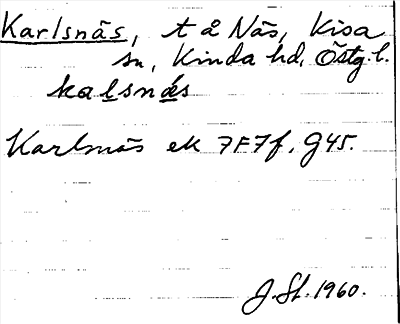 Karlsnäs, t å Näs, Kisa
sn, Kinda hd, Östg. l.
kalsnás
Karlsnäs ek 7F7f, G45.
J. St. 1960.